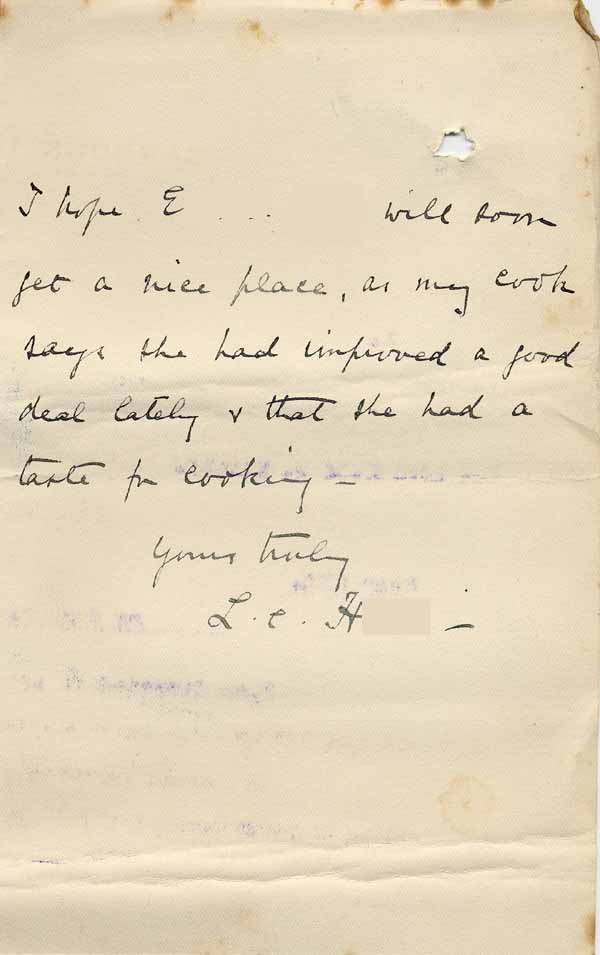 I hope E ... will soon
get a nice place, as my cook
says she had improved a good
deal lately & that she had a
taste for cooking –
Yours truly
L. C. H –